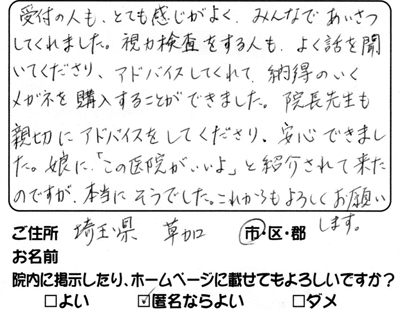 受付の人も、とても感じがよく、みんなであいさつ
してくれました。視力検査をする人も、よく話を聞
いてくださり、アドバイスしてくれて、納得のいく
メガネを購入することができました。院長先生も
親切にアドバイスをしてくださり、安心できまし
た。娘に、「この医院がいいよ」と紹介されて来た
のですが、本当にそうでした。これからもよろしくお願い
します。
ご住所 埼玉県 草加 市・区・郡
お名前
院内に掲示したり、ホームページに載せてもよろしいですか?
□よい ☑匿名ならよい □ダメ